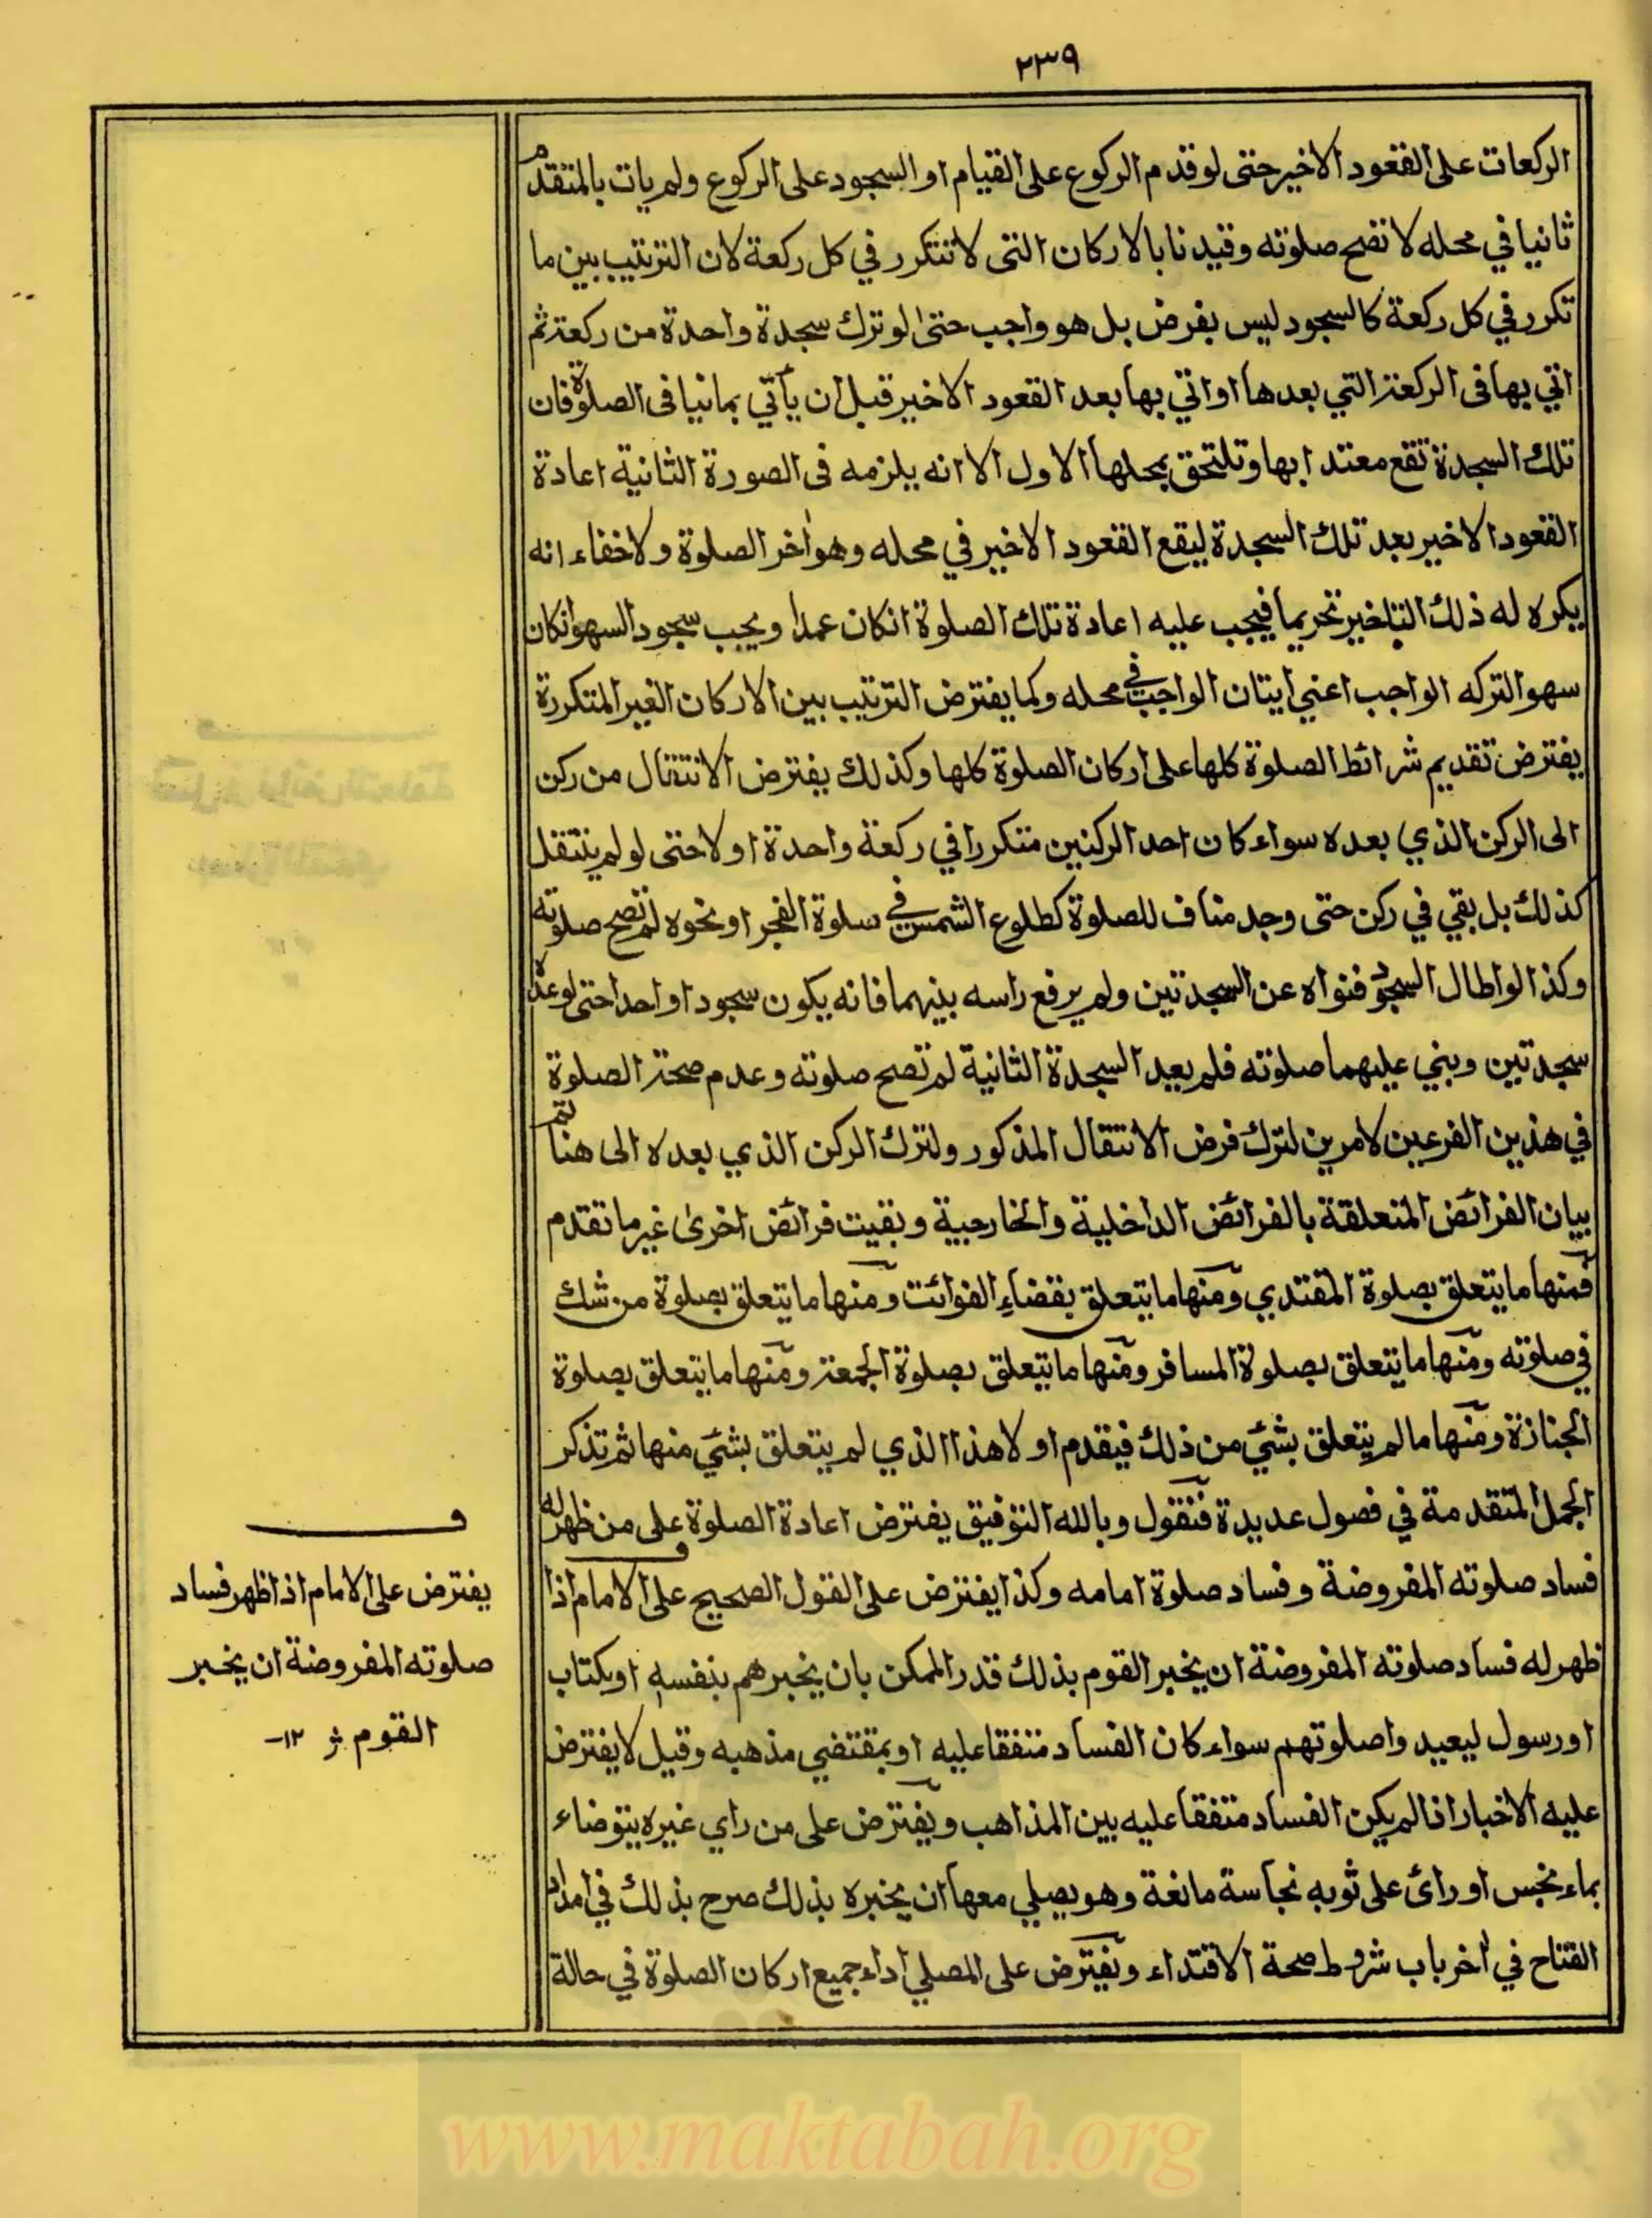 ٢٣٩
الركعات على القعود الاخير حتى لو قدم الركوع على القيام او السجود على الركوع ولم يات بالمتقدم
ثانيا في محله لا تصح صلوته وقيدنا بالاركان التى لا تتكرر في كل ركعة لان الترتيب بين ما
تكرر في كل ركعة كالسجود ليس بفرض بل هو واجب حتى لو ترك سجدة واحدة من ركعة ثم
اتي بها فى الركعة التي بعدها او اتي بها بعد القعود الاخير قبل ان يأتي بمانيا فى الصلوة فان
تلك السجدة تقع معتدا بها وتلتحق بمحلها الاول الا انه يلزمه فى الصورة الثانية اعادة
القعود الاخير بعد تلك السجدة ليقع القعود الاخير في محله وهو اخر الصلوة ولا خفاء انه
يكره له ذلك التاخير تحريما فيجب عليه اعادة تلك الصلوة انكان عمدا ويجب سجود السهو انكان
سهوا لتركه الواجب اعني ايتان الواجب في محله وكما يفترض الترتيب بين الاركان الغير المتكررة
يفترض تقديم شرائط الصلوة كلها على اركان الصلوة كلها وكذلك يفترض الانتقال من ركن
الى الركن الذي بعده سواء كان احد الركنين متكررا في ركعة واحدة او لا حتى لو لم ينتقل
كذلك بل بقي في ركن حتى وجد مناف للصلوة كطلوع الشمس في سلوة الفجر او نحوه لم تصح صلوته
وكذا لو اطال السجود فنواه عن السجدتين ولم يرفع راسه بينهما فانه يكون سجودا واحدا حتى لو عده
سجدتين وبني عليهما صلوته فلم يعيد السجدة الثانية لم تصح صلوته وعدم صحة الصلوة
في هذين الفرعين لامرين لترك فرض الانتقال المذكور ولترك الركن الذي بعده الى هنا تم
بيان الفرائض المتعلقة بالفرائض الداخلية والخارجية وبقيت فرائض اخرى غير ما تقدم
فمنها ما يتعلق بصلوة المقتدي ومنها ما يتعلق بقضاء الفوائت ومنها ما يتعلق بصلوة من شك
في صلوته ومنها ما يتعلق بصلوة المسافر ومنها ما يتعلق بصلوة الجمعة ومنها ما يتعلق بصلوة
الجنازة ومنها ما لم يتعلق بشئ من ذلك فيقدم اولا هذا الذي لم يتعلق بشئ منها ثم تذكر
الجمل المتقدمة في فصول عديدة فنقول وبالله التوفيق يفترض اعادة الصلوة على من ظهر له
فساد صلوته المفروضة وفساد صلوة امامه وكذا يفترض على القول الصحيح على الامام اذا
ظهر له فساد صلوته المفروضة ان يخبر القوم بذلك قدر الممكن بان يخبرهم بنفسه او بكتاب
او رسول ليعيدوا صلوتهم سواء كان الفساد متفقا عليه او بمقتضي مذهبه وقيل لا يفترض
عليه الاخبار اذا لم يكن الفساد متفقا عليه بين المذاهب ويفترض على من راي غيره يتوضاء
بماء نجس او رائ على ثوبه نجاسة مانعة وهو يصلي معها ان يخبره بذلك صرح بذلك في امداد
الفتاح في اخر باب شروط صحة الاقتداء ويفترض على المصلي اداء جميع اركان الصلوة في حالة
ف
يفترض على الامام اذا ظهر فساد
صلوته المفروضة ان يخبر
القوم ١٢
www.maktabah.org